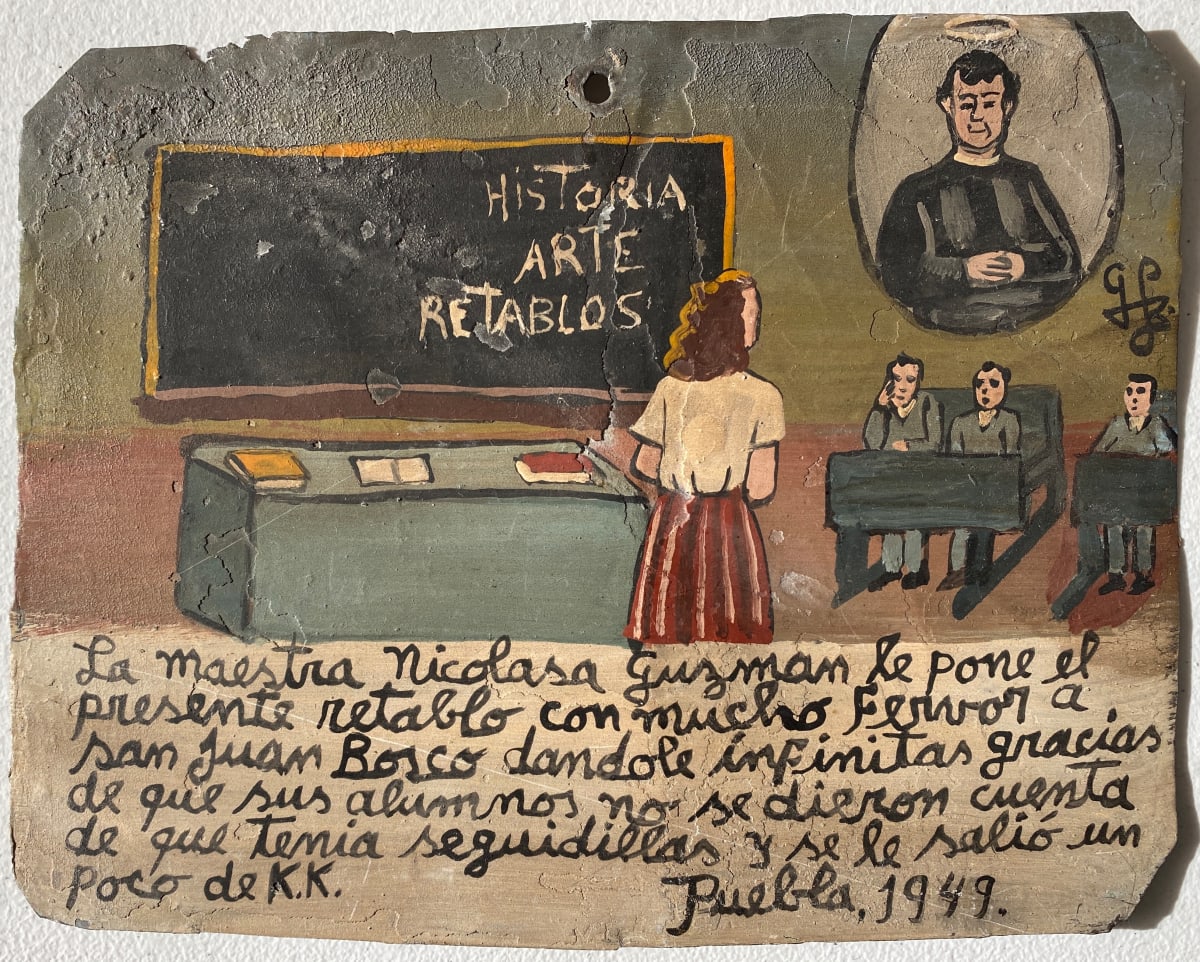 HISTORIA
ARTE
RETABLOS
La maestra Nicolasa Guzman le pone el
presente retablo con mucho Fervor a
san Juan Bosco dandole infinitas gracias
de que sus alumnos no se dieron cuenta
de que tenia seguidillas y se le salió un
poco de K.K.
Puebla, 1949.